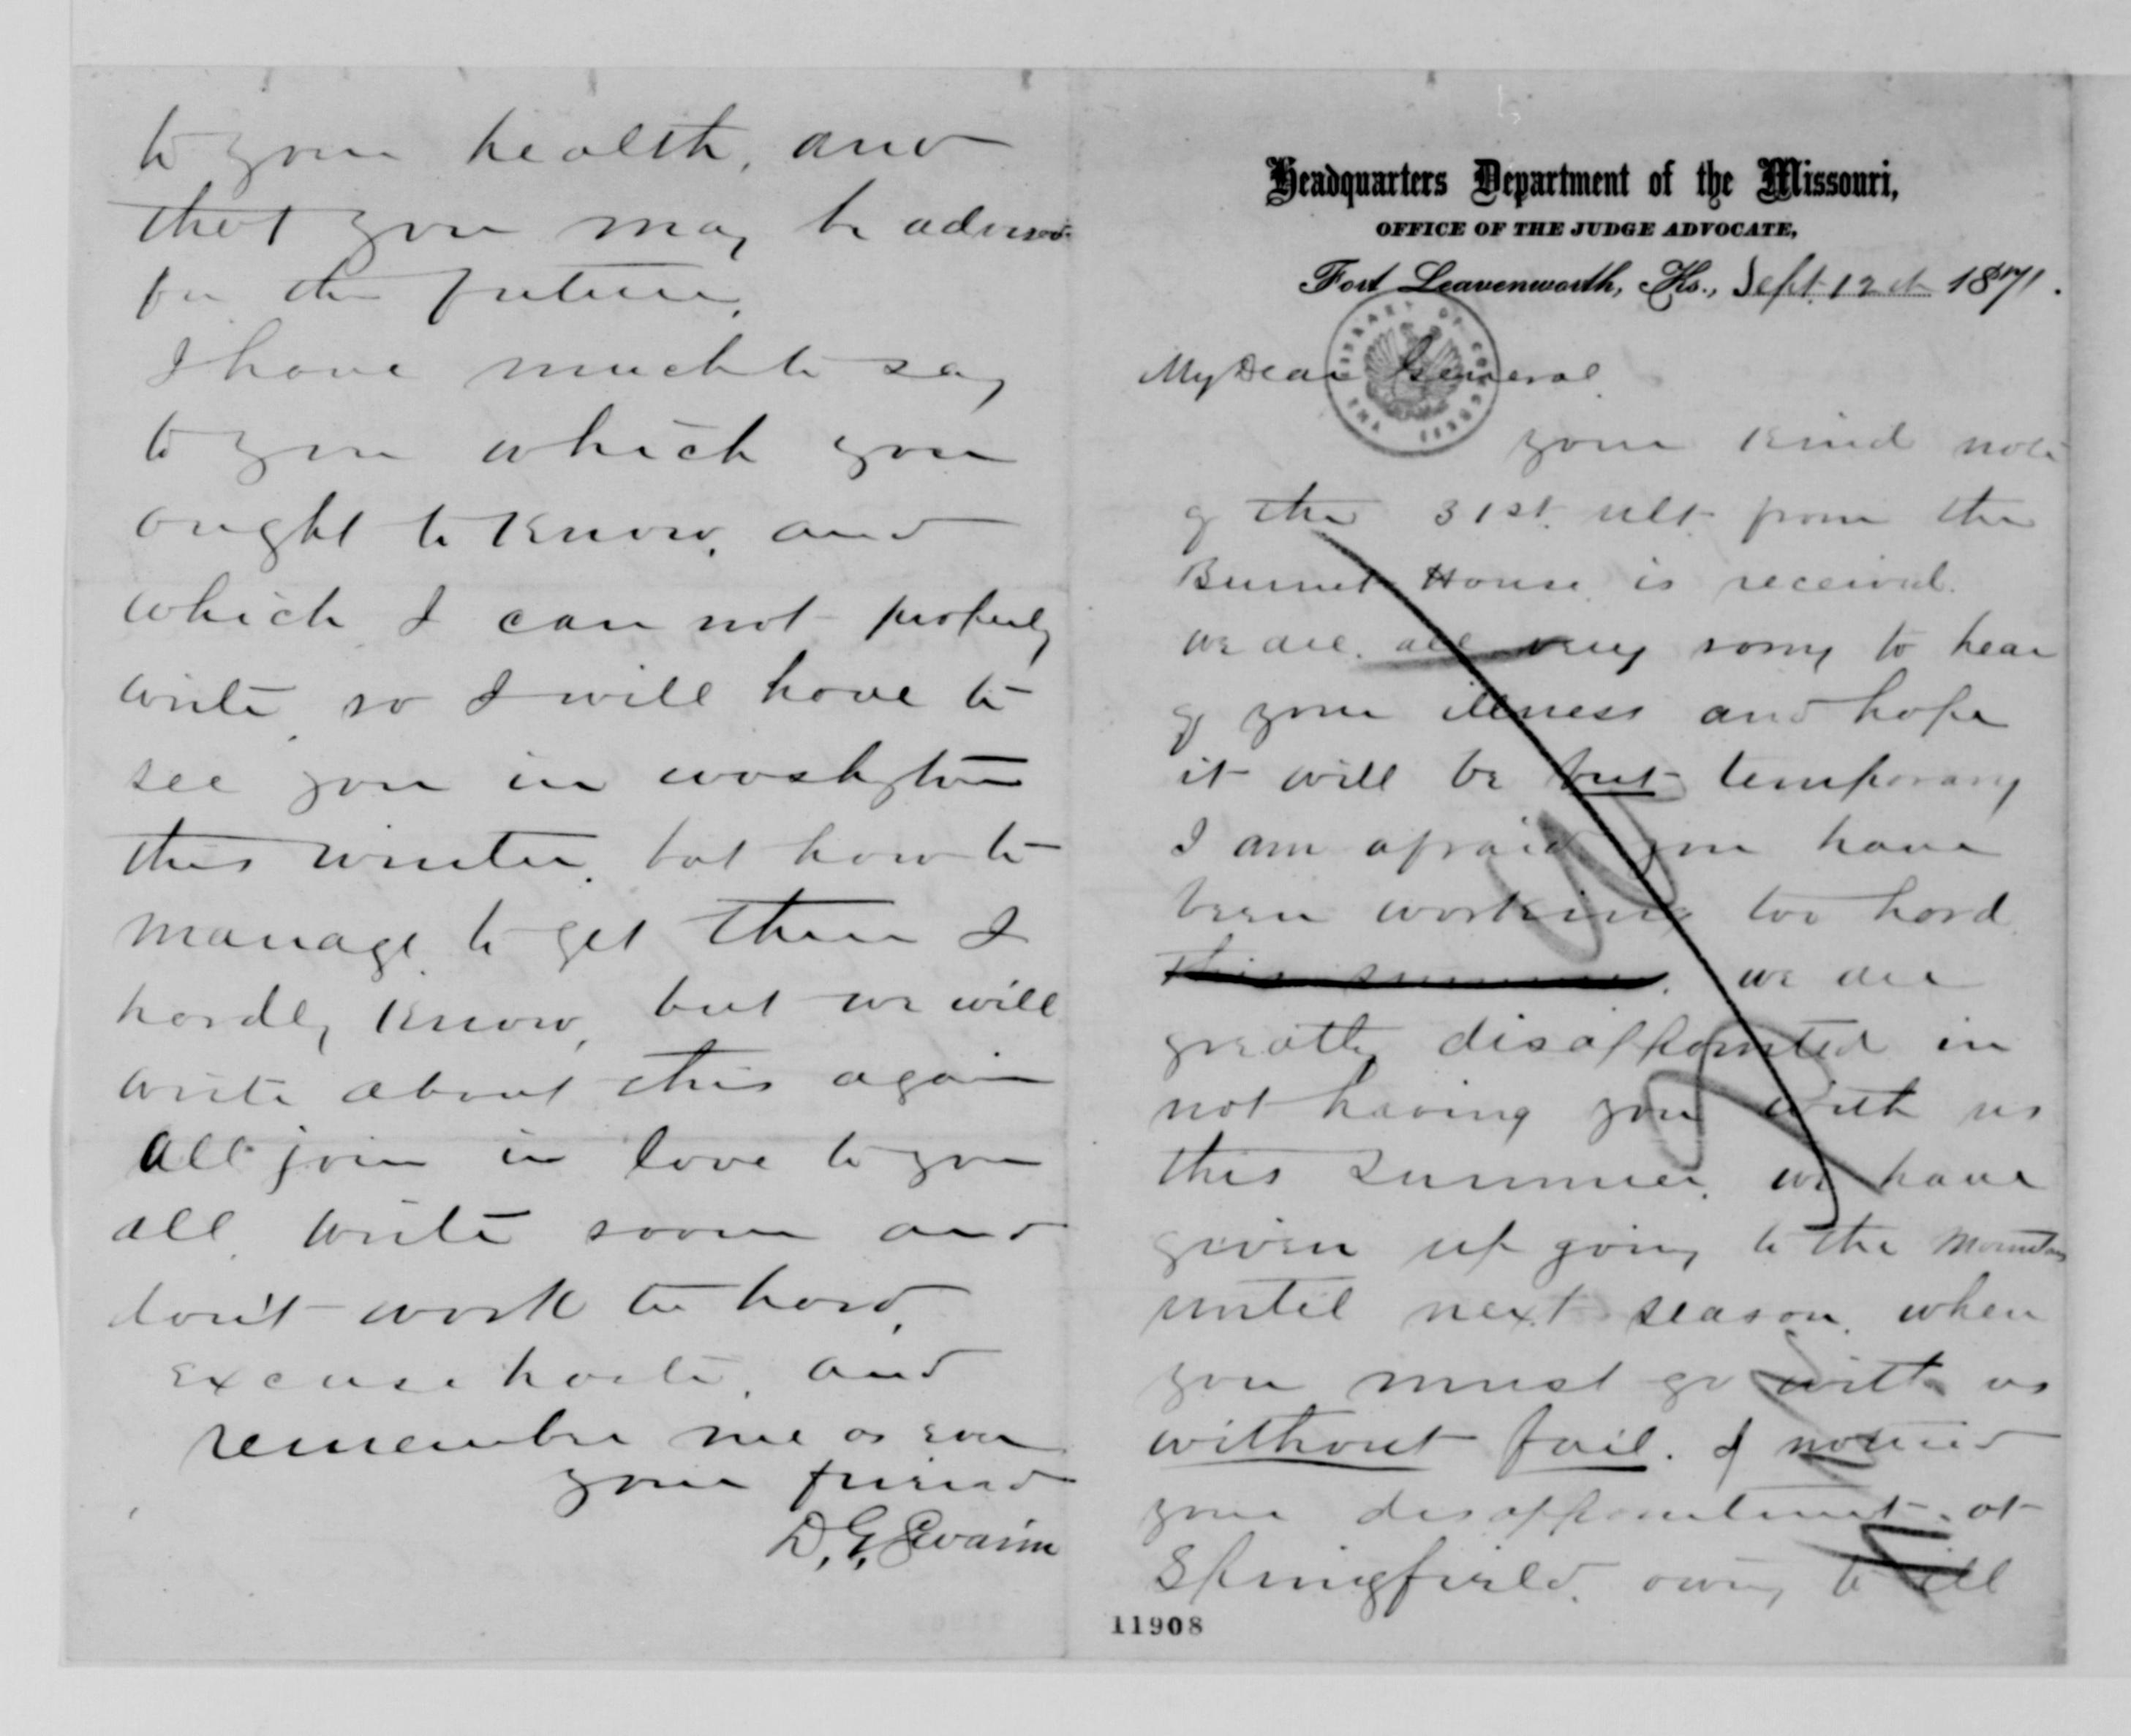 Headquarters Department of the Missouri,
OFFICE OF THE JUDGE ADVOCATE,
Fort Leavenworth, Ks., Sept. 12th 1871.
THE LIBRARY OF CONGRESS
My Dear General.
your kind note
of the 31st. ult from the
Burnet House is received.
we are all very sorry to hear
of your illness and hope
it will be but temporary
I am afraid you have
been working too hard
this summer. we are
greatly disappointed in
not having you with us
this summer. we have
given up going to the mountains
until next season. when
you must go with us
without fail. I noticed
your disappointment at
Springfield. owing to ill
11908
to your health, and
that you may be advised
for the future.
I have much to say
to you which you
ought to know, and
which I can not properly
write, so I will have to
see you in washington
this winter. but how to
manage to get there I
hardly know, but we will
write about this again
All join in love to you
all. write soon and
don't work too hard.
excuse haste, and
remember me as ever
your friend
D. G. Swaim